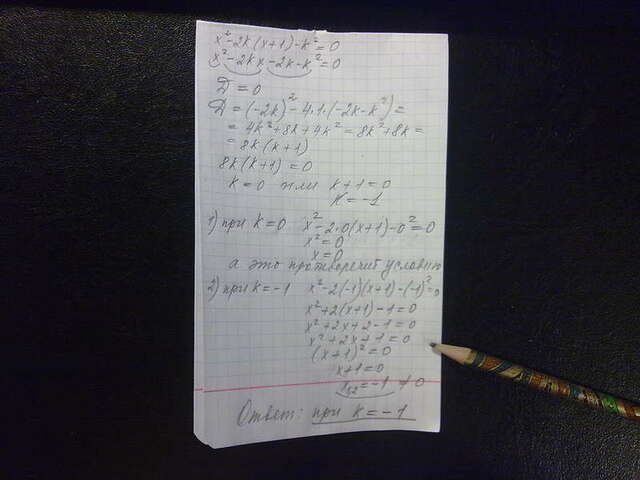 x² - 2k(x+1) - k² = 0
x² - 2kx - 2k - k² = 0
D = 0
D = (-2k)² - 4·1·(-2k - k²) =
= 4k² + 8k + 4k² = 8k² + 8k =
= 8k(k+1)
8k(k+1) = 0
k = 0 или k+1 = 0
k = -1
1) при k = 0 x² - 2·0(x+1) - 0² = 0
x² = 0
x = 0
а это противоречит условию
2) при k = -1 x² - 2(-1)(x+1) - (-1)² = 0
x² + 2(x+1) - 1 = 0
x² + 2x + 2 - 1 = 0
x² + 2x + 1 = 0
(x+1)² = 0
x+1 = 0
x₁,₂ = -1 ≠ 0
Ответ: при k = -1